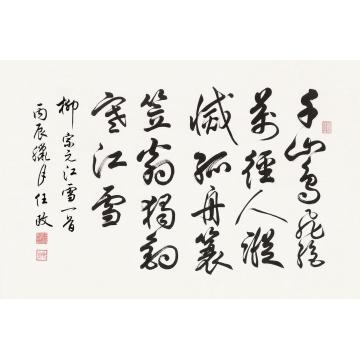 千山鳥飛絶
萬徑人蹤
滅孤舟蓑
笠翁獨釣
寒江雪
柳宗元江雪一首
丙辰臘月任政